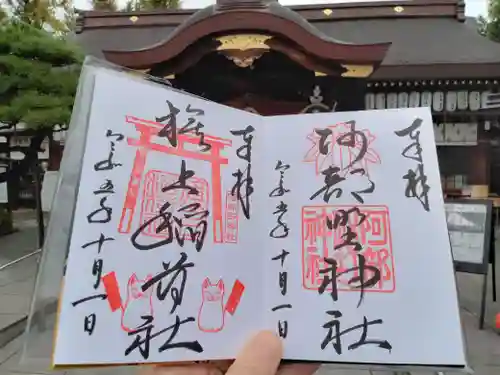 奉拝
阿部野神社
阿部野
神社
令和五年十月一日
奉拝
旗上稲荷社
令和五年十月一日